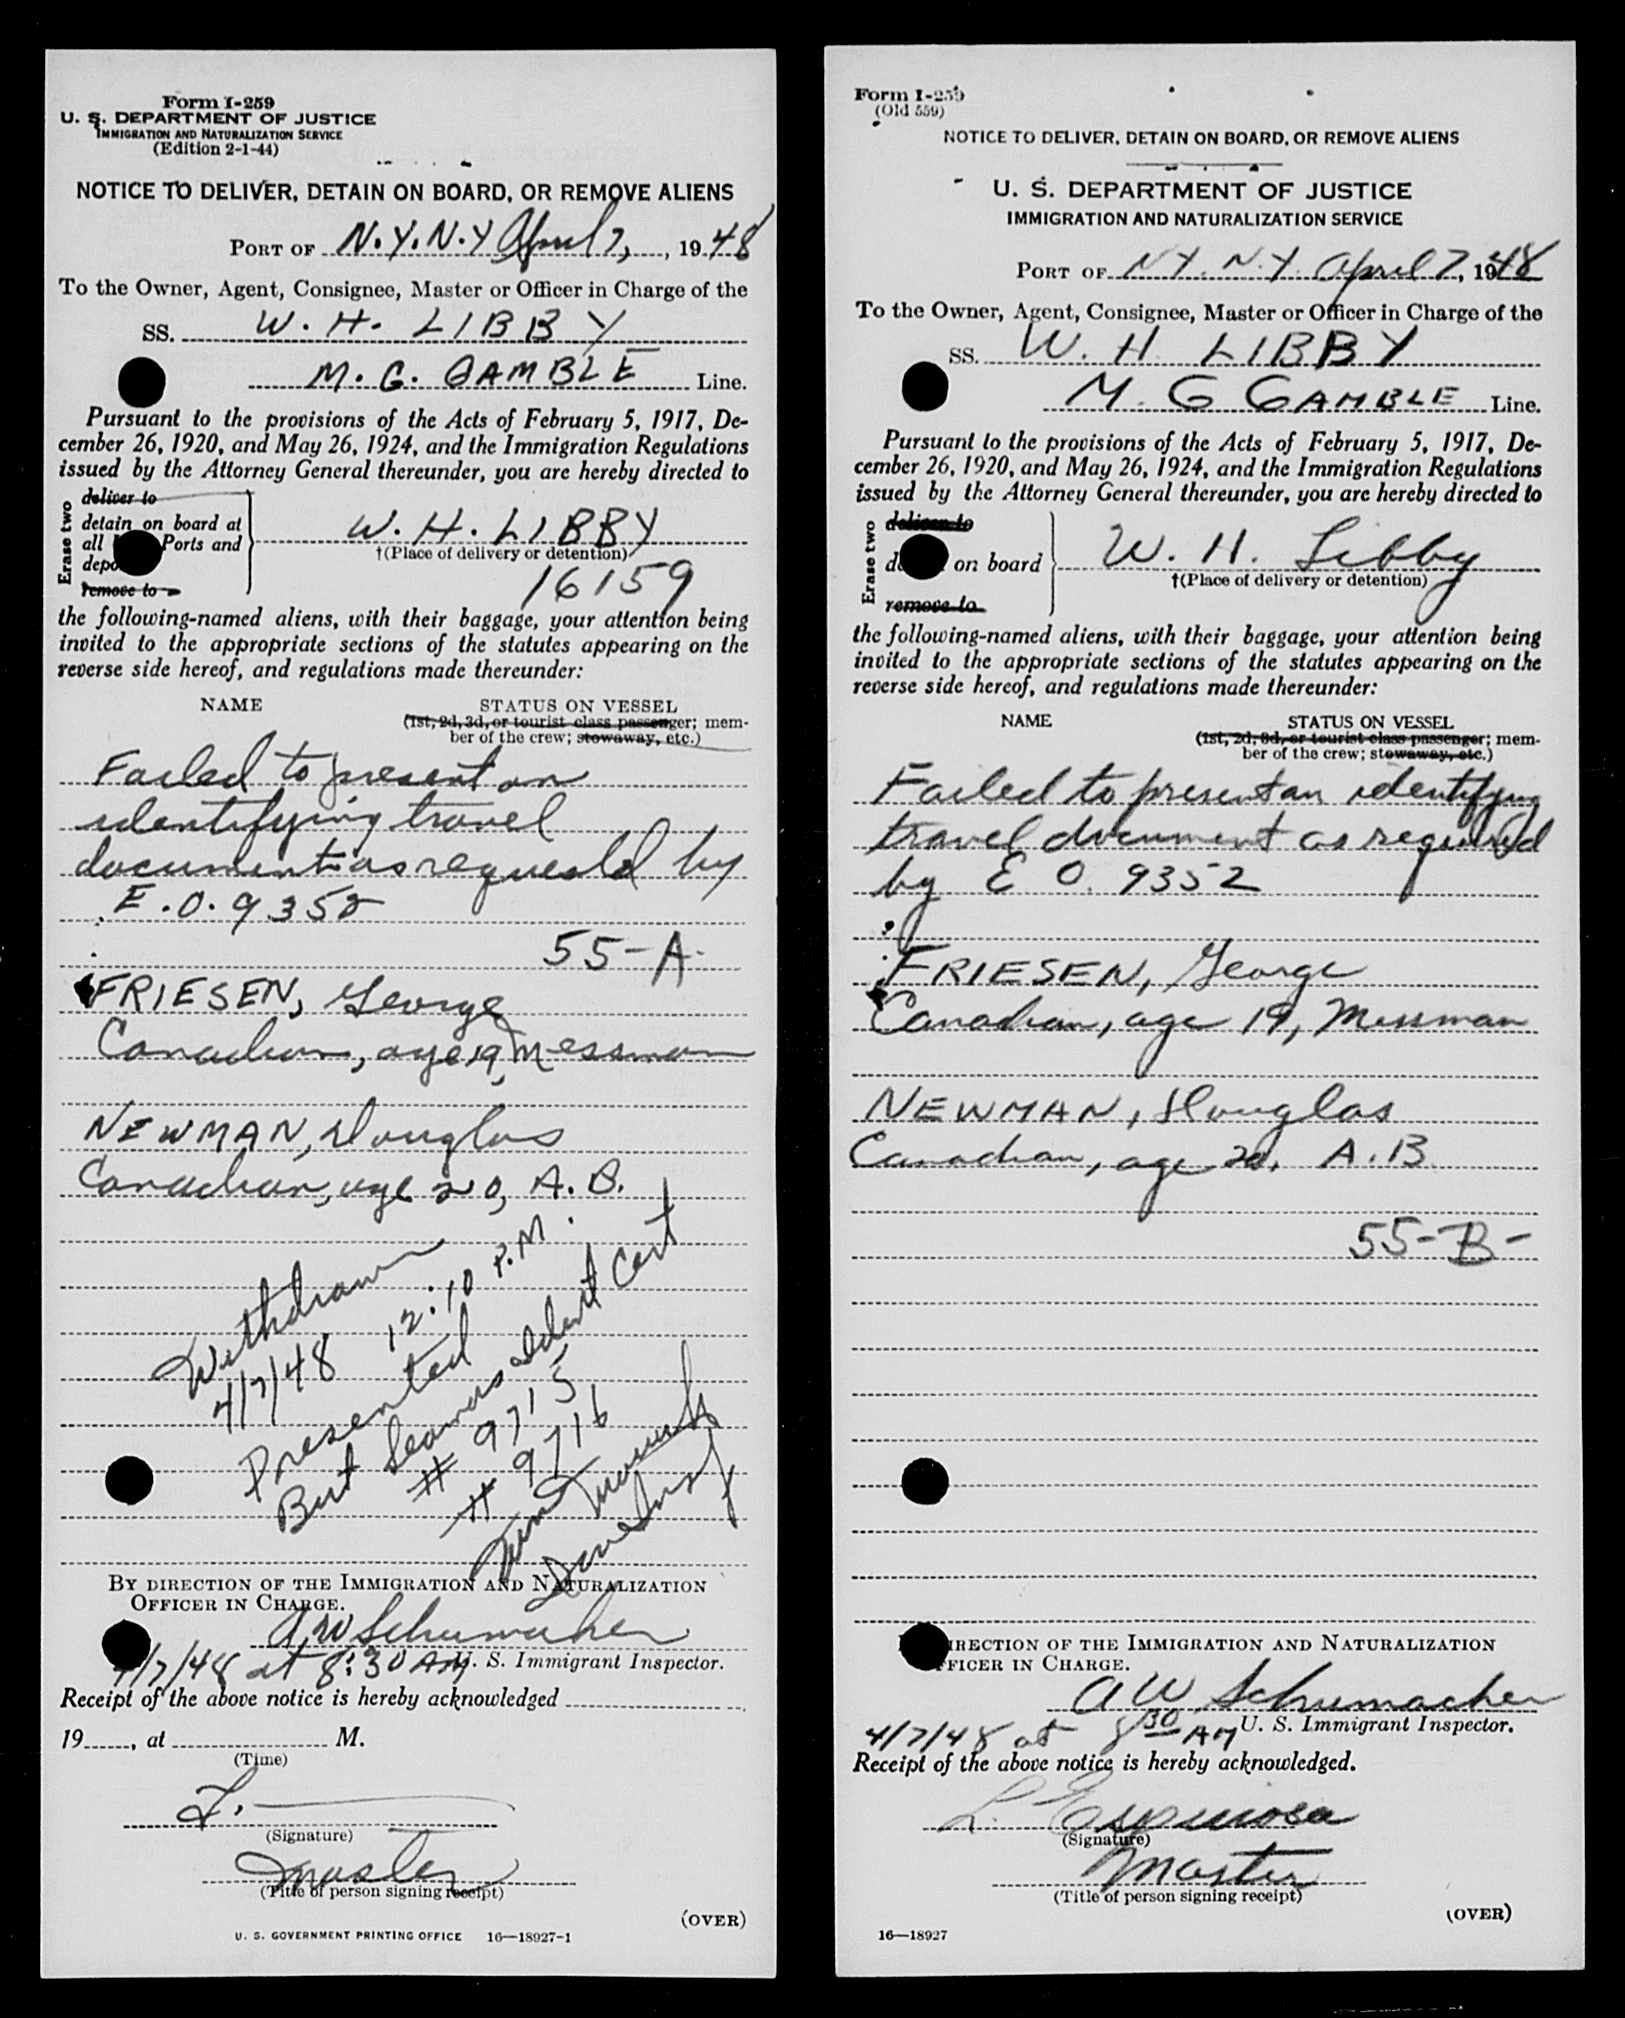 Form I-259
U. S. DEPARTMENT OF JUSTICE
IMMIGRATION AND NATURALIZATION SERVICE
(Edition 2-1-44)
NOTICE TO DELIVER, DETAIN ON BOARD, OR REMOVE ALIENS
PORT OF N.Y.N.Y April 7, , 19 48
To the Owner, Agent, Consignee, Master or Officer in Charge of the
SS. W. H. LIBBY
M. G. GAMBLE Line.
Pursuant to the provisions of the Acts of February 5, 1917, De-
cember 26, 1920, and May 26, 1924, and the Immigration Regulations
issued by the Attorney General thereunder, you are hereby directed to
Erase two
deliver to
detain on board at
all Ports and
remove to
W. H. LIBBY
†(Place of delivery or detention)
16159
the following-named aliens, with their baggage, your attention being
invited to the appropriate sections of the statutes appearing on the
reverse side hereof, and regulations made thereunder:
NAME STATUS ON VESSEL
(1st, 2d, 3d, or tourist class passenger; mem-
ber of the crew; stowaway, etc.)
Failed to present an
identifying travel
document as requested by
E.O. 9352
55-A-
FRIESEN, George
Canadian, age 19, Messman
NEWMAN, Douglas
Canadian, age 20, A.B.
Withdrawn
4/7/48 12:10 P.M.
Presented
Brit Seamans Ident Cert
# 9715
# 9716
BY DIRECTION OF THE IMMIGRATION AND NATURALIZATION
OFFICER IN CHARGE.
A W Schumacher
4/7/48 at 8:30 AM U. S. Immigrant Inspector.
Receipt of the above notice is hereby acknowledged
19 , at M.
(Time)
L.
(Signature)
Master
(Title of person signing receipt)
(OVER)
U. S. GOVERNMENT PRINTING OFFICE 16—18927-1
Form I-259
(Old 559)
NOTICE TO DELIVER, DETAIN ON BOARD, OR REMOVE ALIENS
U. S. DEPARTMENT OF JUSTICE
IMMIGRATION AND NATURALIZATION SERVICE
PORT OF N.Y. N.Y. April 7, 1948
To the Owner, Agent, Consignee, Master or Officer in Charge of the
SS. W. H. LIBBY
M. G GAMBLE Line.
Pursuant to the provisions of the Acts of February 5, 1917, De-
cember 26, 1920, and May 26, 1924, and the Immigration Regulations
issued by the Attorney General thereunder, you are hereby directed to
Erase two
deliver to
on board
remove to
W. H. Libby
†(Place of delivery or detention)
the following-named aliens, with their baggage, your attention being
invited to the appropriate sections of the statutes appearing on the
reverse side hereof, and regulations made thereunder:
NAME STATUS ON VESSEL
(1st, 2d, 3d, or tourist class passenger; mem-
ber of the crew; stowaway, etc.)
Failed to present an identifying
travel document as required
by E O. 9352
FRIESEN, George
Canadian, age 19, Messman
NEWMAN, Douglas
Canadian, age 20, A.B.
55-B-
DIRECTION OF THE IMMIGRATION AND NATURALIZATION
OFFICER IN CHARGE.
A W Schumacher
4/7/48 at 8 30 AM U. S. Immigrant Inspector.
Receipt of the above notice is hereby acknowledged.
L. Espinosa
(Signature)
Master
(Title of person signing receipt)
(OVER)
16—18927